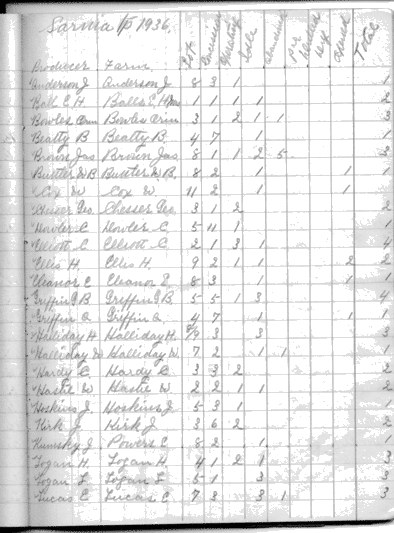 Sarnia 1/5 1936.
Producer Farm Lot Concession Operating Idle Abandoned Total
Anderson J Anderson J 8 3 1 1
Ball E H 1 1 1 1 2
Bowles Erin Bowles Erin 3 1 2 1 1 3
Beatty B Beatty B. 4 7 1 1
Brown Jas Brown Jas 8 1 1 2 5 3
Buttler W B Buttler W B. 8 2 1 1 1
Cox W Cox W. 11 2 1 1
Chesser Geo. Chesser Geo. 3 1 2 2
Howler C Howler C. 5 11 1 1
Elliott C Elliott C. 2 1 3 1 4
Ellis H Ellis H. 9 2 1 1 2 2
Eleanor E Eleanor E 8 3 1 1 1
Griffin G B Griffin G B. 5 5 1 3 4
Griffin A Griffin A. 4 7 1 1 1
Halliday H Halliday H. 3 3 3
Halliday W Halliday W. 7 2 1 1 1
Hardy C Hardy C. 3 3 2 2
Hastie W Hastie W 2 2 1 1 2
Hoskins J. Hoskins J 5 3 1 1
Kirk J Kirk J 3 6 2 2
Powers E 8 2 1 1
Logan H. Logan H 4 1 2 1 3
Logan L Logan L 5 1 3 3
Lucas E Lucas E. 7 3 3 1 3